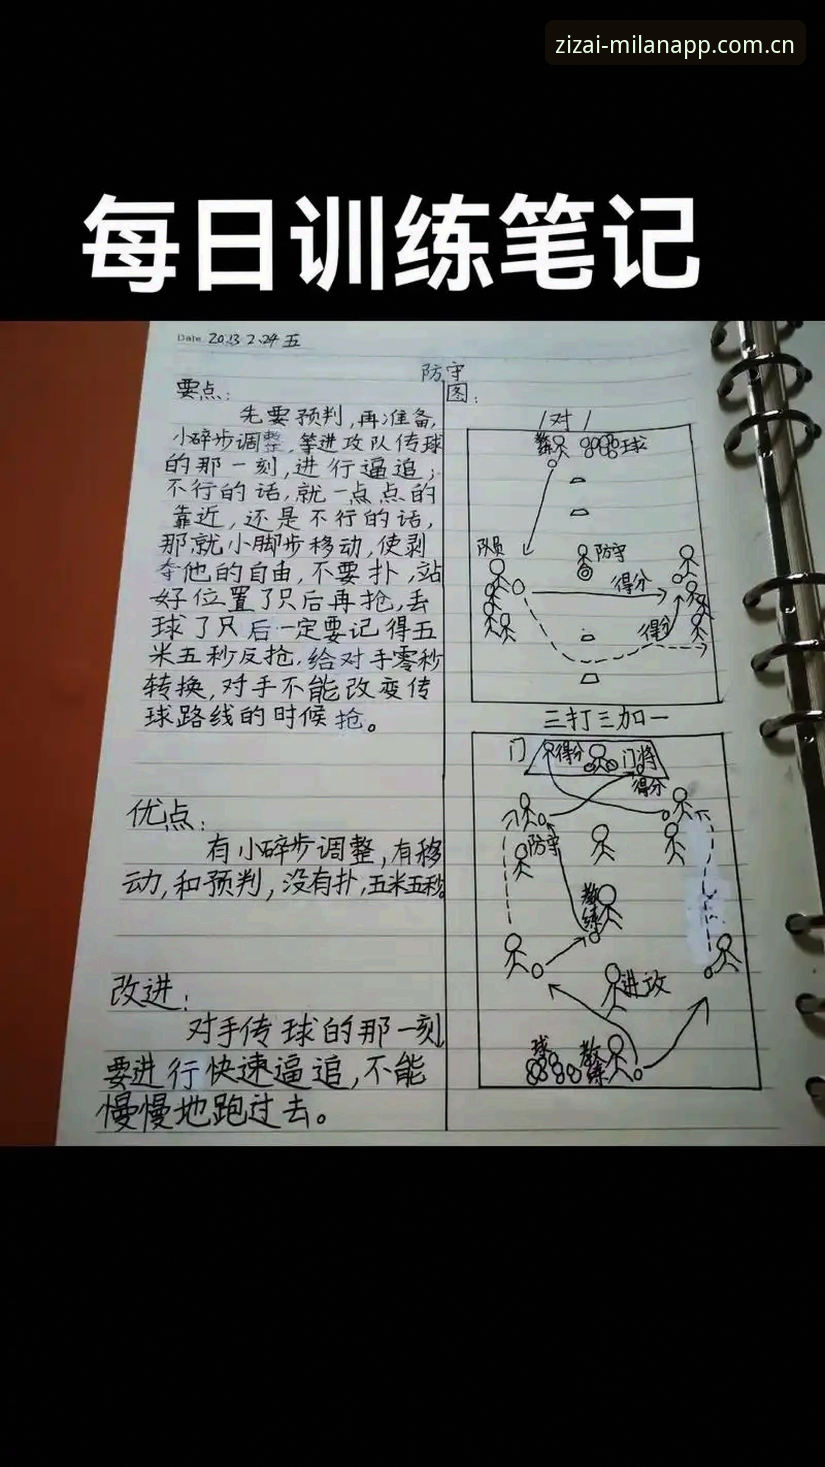 zizai-milanapp.com.cn
每日训练笔记
Date 2013 2.24 五
防守
要点:
先要预判,再准备,
小碎步调整,等进攻队传球
的那一刻,进行逼追;
不行的话,就一点点的
靠近,还是不行的话,
那就小脚步移动,使剥
夺他的自由,不要扑,站
好位置了只后再抢,丢
球了只后一定要记得五
米五秒反抢,给对手零秒
转换,对手不能改变传
球路线的时候抢。
优点:
有小碎步调整,有移
动,和预判,没有扑,五米五秒
改进:
对手传球的那一刻
要进行快速逼追,不能
慢慢地跑过去。
图:
1对1
教练
球
队员
防守
得分
得分
三打三加一
门
得分
门将
得分
防守
教练
进攻
球
教练